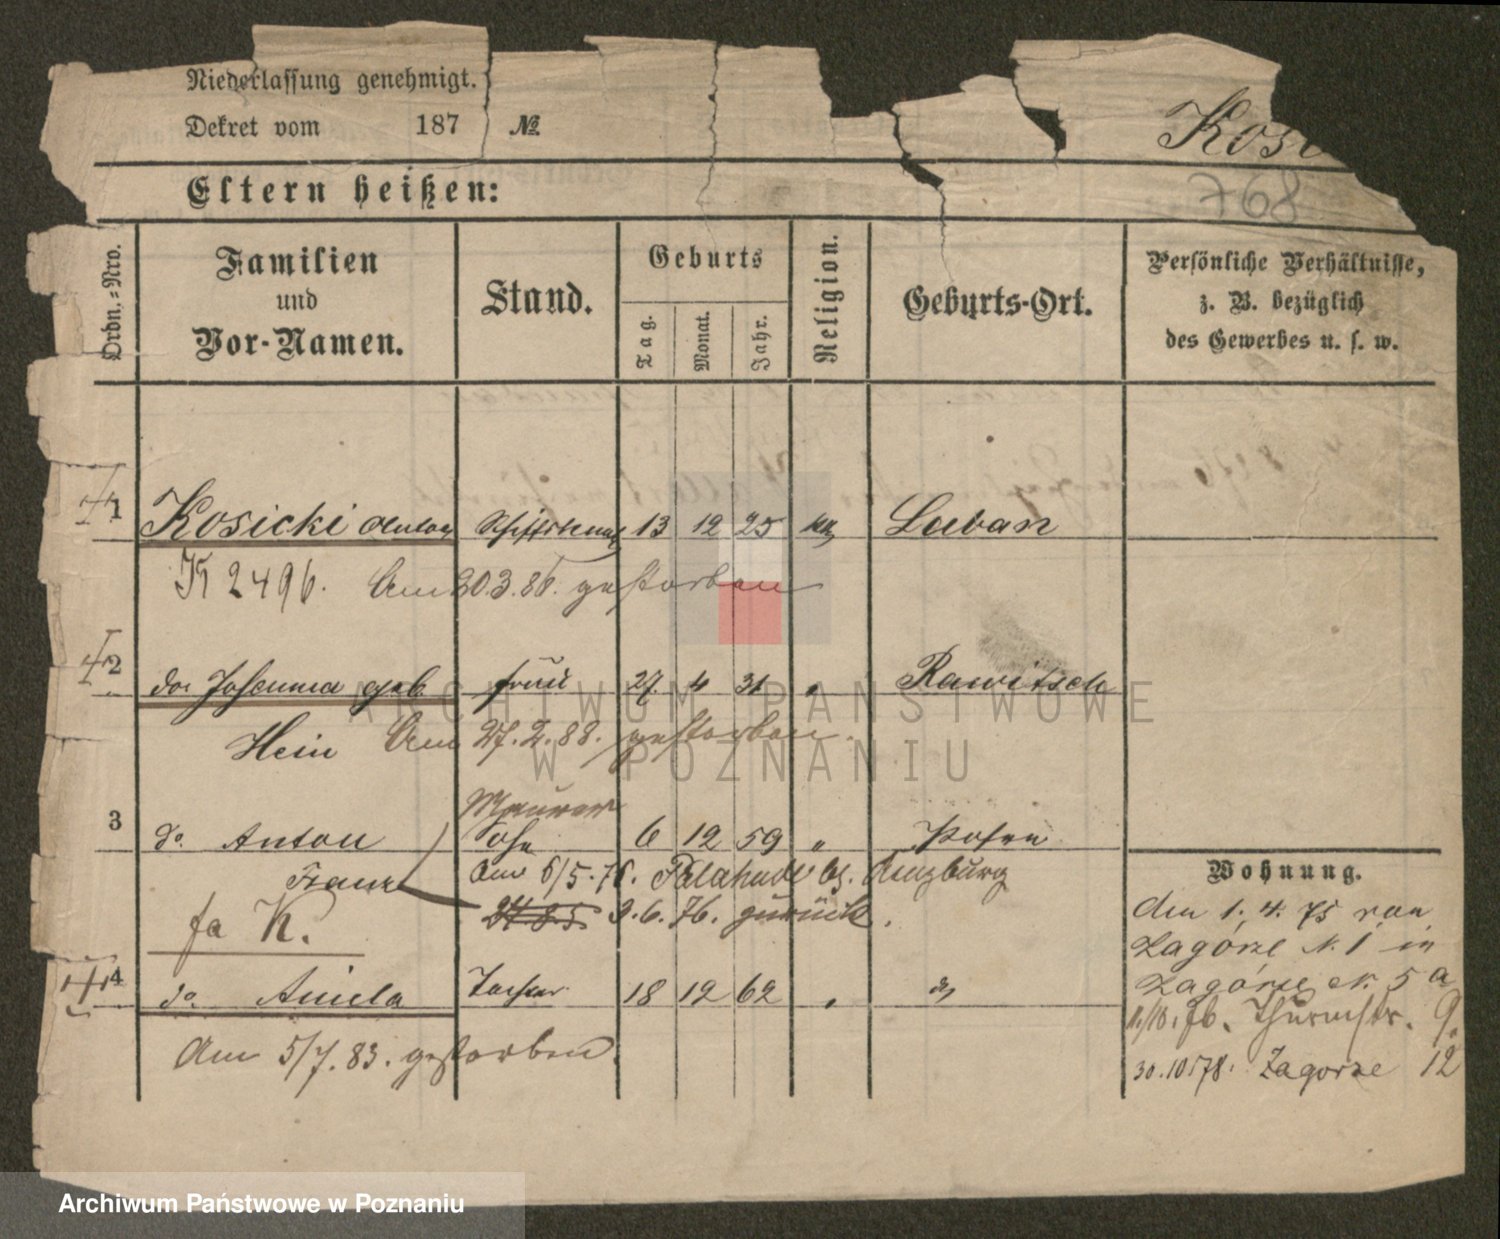 Niederlassung genehmigt.
Dekret vom 187 №
Kosi
Eltern heißen:
768
Ordn.=Nro.
Familien
und
Vor-Namen.
Stand.
Geburts
Tag.
Monat.
Jahr.
Religion.
Geburts-Ort.
Persönliche Verhältnisse,
z. B. bezüglich
des Gewerbes u. s. w.
1 Kosicki Anton 13 12 25 kth Luban
K 2496. Am 20.3.86. gestorben
2 do. geb frau 27. 4 31 " Rawitsch
Hein Am 27.2.88. gestorben.
Maurer
3 do Anton Sohn 6 12 59 " Posen
Franz Am 6/5.76.
3.6.76. zurück.
fa K.
4 do. Aniela Tochter 18 12 62 " do
Am 5/7.83. gestorben.
Wohnung.
den 1.4.75 von
Zagórze N. 1 in
Zagórze N. 5 a
Thurmstr. 9.
30.10.78. Zagorze 12
ARCHIWUM PAŃSTWOWE
W POZNANIU
Archiwum Państwowe w Poznaniu